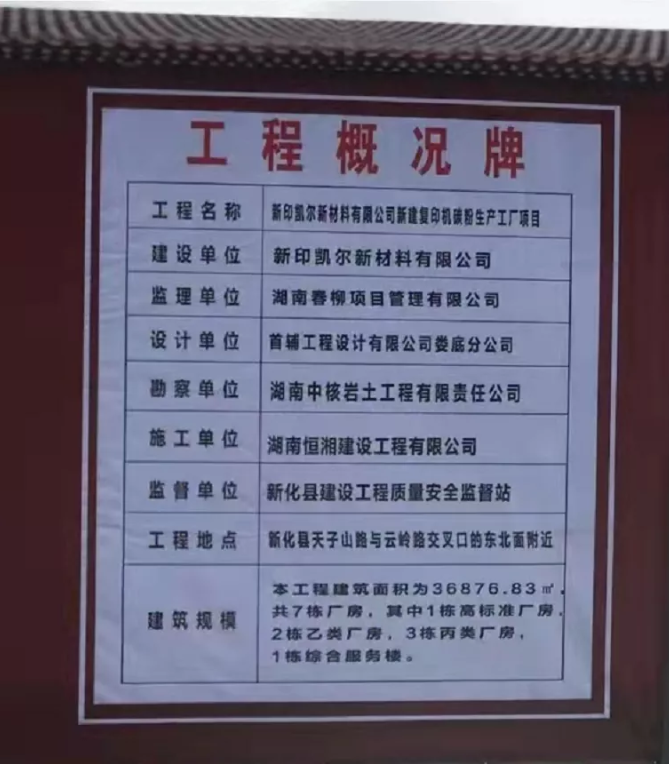 工程概况牌
工程名称 新印凯尔新材料有限公司新建复印机碳粉生产工厂项目
建设单位 新印凯尔新材料有限公司
监理单位 湖南春柳项目管理有限公司
设计单位 首辅工程设计有限公司娄底分公司
勘察单位 湖南中核岩土工程有限责任公司
施工单位 湖南恒湘建设工程有限公司
监督单位 新化县建设工程质量安全监督站
工程地点 新化县天子山路与云岭路交叉口的东北面附近
建筑规模 本工程建筑面积为36876.83㎡,
共7栋厂房,其中1栋高标准厂房,
2栋乙类厂房,3栋丙类厂房,
1栋综合服务楼。